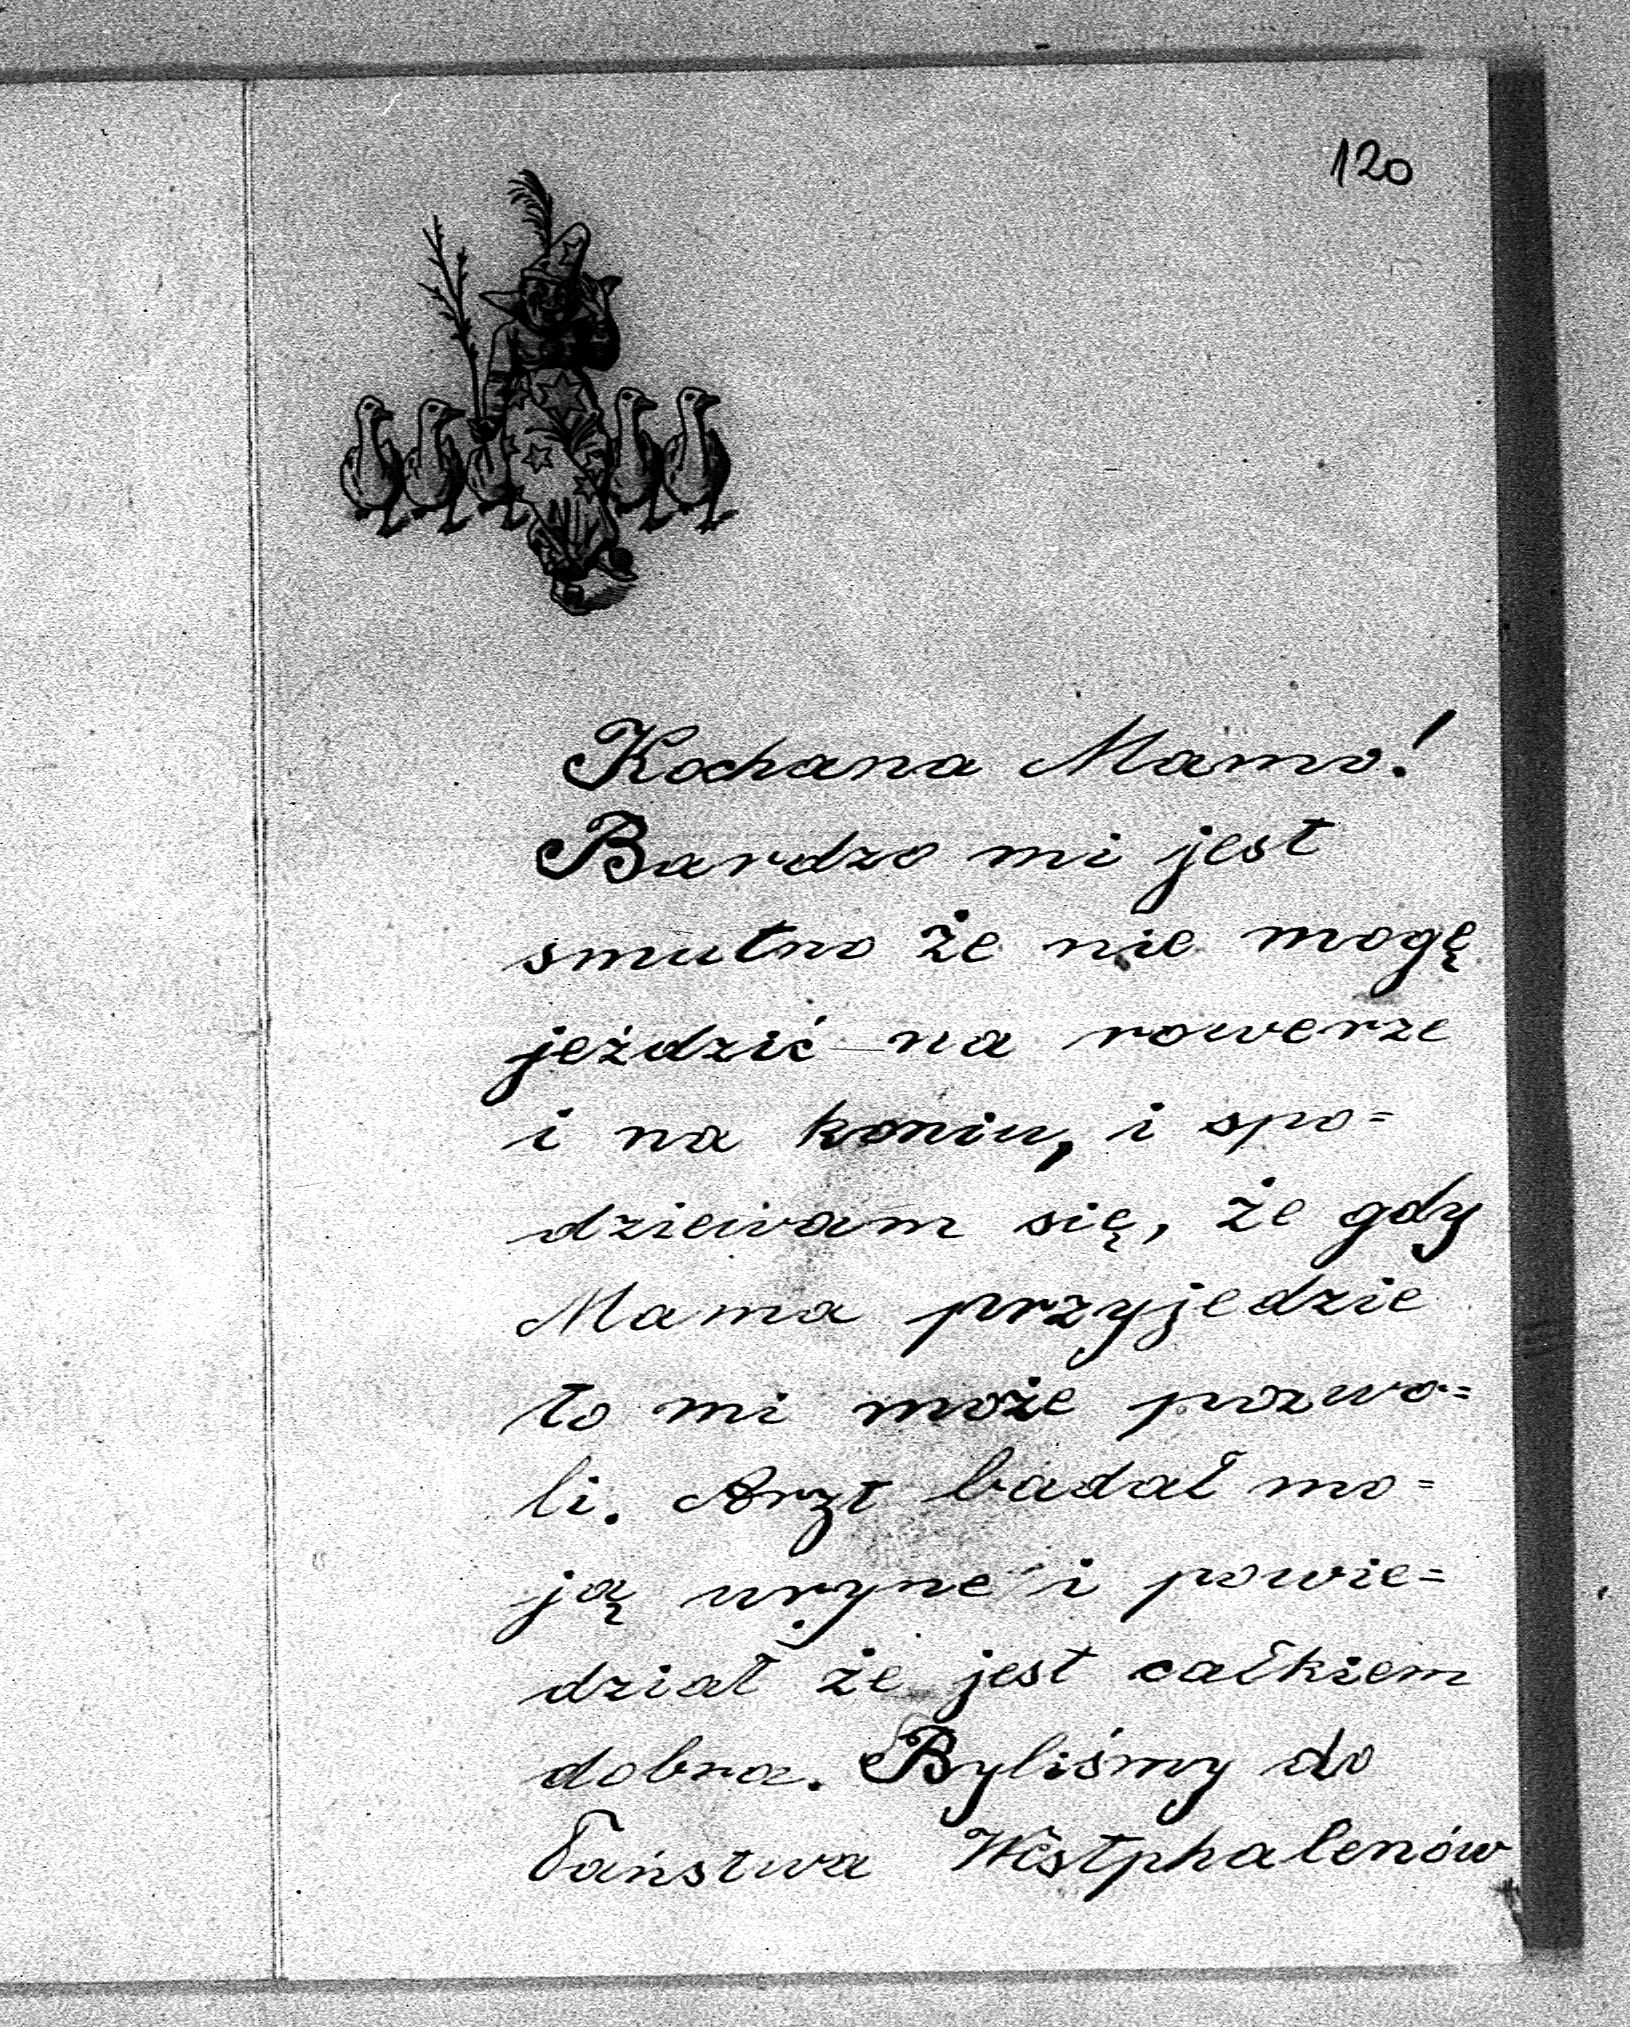 120
Kochana Mamo!
Bardzo mi jest
smutno że nie mogę
jeździć na rowerze
i na koniu, i spo=
dziewam się, że gdy
Mama przyjedzie
to mi może pozwo=
li. Arzt badał mo=
ją urynę i powie=
dział że jest całkiem
dobra. Byliśmy do
Państwa Westphalenów